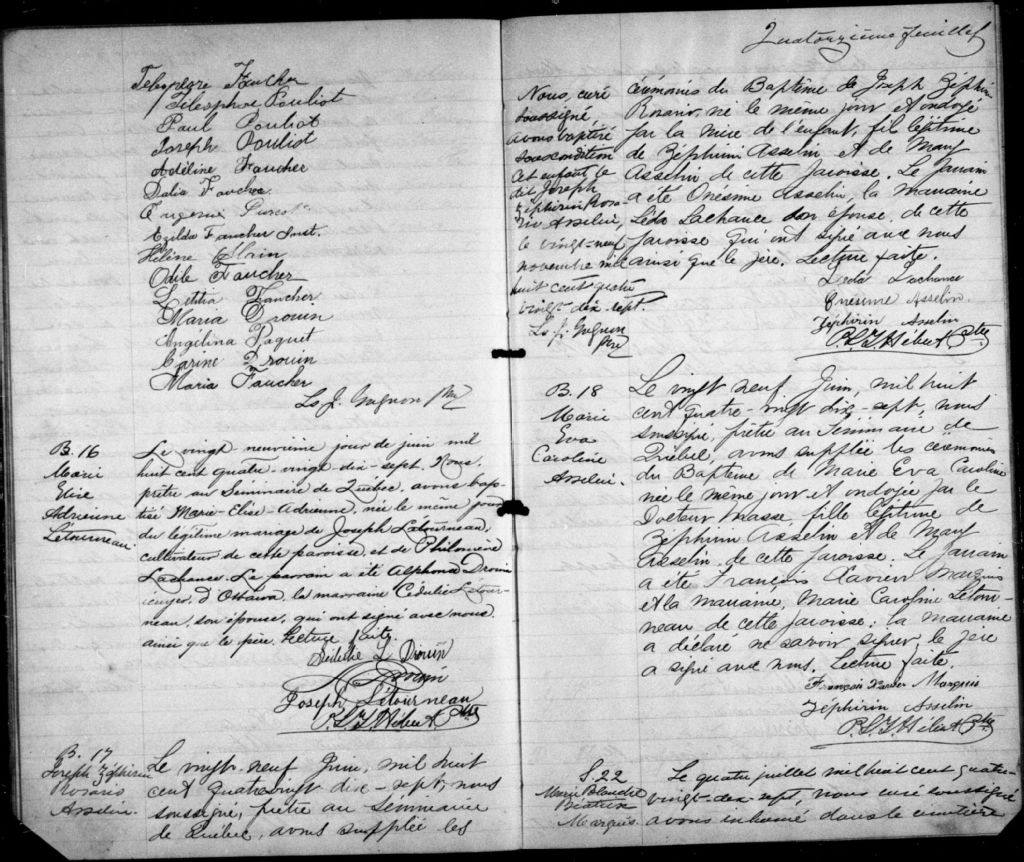 Telesphore Faucher
Télesphore Pouliot
Paul Pouliot
Joseph Pouliot
Adéline Faucher
Dalia Faucher
Eugenie
Exilda Faucher Inst.
Hélène Allain
Odile Faucher
Letitia Faucher
Maria Drouin
Angélina Paquet
Corine Drouin
Maria Faucher
Ls J. Gagnon Ptre
B. 16
Marie
Elise
Adrienne
Létourneau
Le vingt neuvième jour de juin mil
huit cent quatre-vingt dix-sept, Nous,
prêtre au Séminaire de Québec, avons bap-
tisé Marie-Elise-Adrienne, née le même jour
du légitime mariage de Joseph Létourneau,
cultivateur de cette paroisse, et de Philomène
Lachance. Le parrain a été Alphonse Drouin
, d'Ottawa, la marraine Cédulie Létour-
neau, son épouse, qui ont signé avec nous
ainsi que le père. Lecture faite.
L. Drouin
Drouin
Joseph Létourneau
P.L.J. Hébert Ptre
B. 17
Joseph Zéphirin
Rosario
Asselin
Le vingt-neuf Juin, mil huit
cent quatrevingt dix-sept, nous
soussigné, prêtre au Séminaire
de Québec, avons supplée les
Quatorzième feuillet
cérémonies du Baptême de Joseph Zéphirin
Rosario, né le même jour et ondoyé
par la mère de l'enfant, fils légitime
de Zéphirin Asselin et de Mary
Asselin de cette paroisse. Le parrain
a été Onésime Asselin, la marraine
Léda Lachance son épouse, de cette
paroisse qui ont signé avec nous
ainsi que le père. Lecture faite.
Léda Lachance
Onésime Asselin
Zéphirin Asselin
P.L.J. Hébert Ptre
Nous, curé
soussigné,
avons baptisé
sous condition
cet enfant, le
dit Joseph
Zéphirin Rosa-
rio Asselin,
le vingt-neuf
novembre mil
huit cent quatre
vingt-dix-sept.
Ls J. Gagnon
Ptre
B. 18
Marie
Eva
Caroline
Asselin
Le vingt neuf Juin, mil huit
cent quatre-vingt dix-sept, nous
soussigné, prêtre au Séminaire de
Québec, avons supplée les cérémonies
du Baptême de Marie Eva Caroline
née le même jour et ondoyée par le
Docteur Masse, fille légitime de
Zéphirin Asselin et de Mary
Asselin de cette paroisse. Le parrain
a été François Xavier Marquis
et la marraine, Marie Caroline Létour-
neau de cette paroisse; la marraine
a déclaré ne savoir signer, le père
a signé avec nous. Lecture faite.
François Xavier Marquis
Zéphirin Asselin
P.L.J. Hébert Ptre
S. 22
Marie Blandine
Béatrix
Marquis
Le quatre juillet mil huit cent quatre-
vingt-dix-sept, nous curé soussigné
avons inhumé dans le cimetière